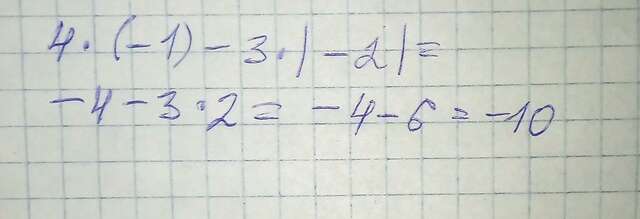 4·(-1)-3·|-2|=
-4-3·2=-4-6=-10